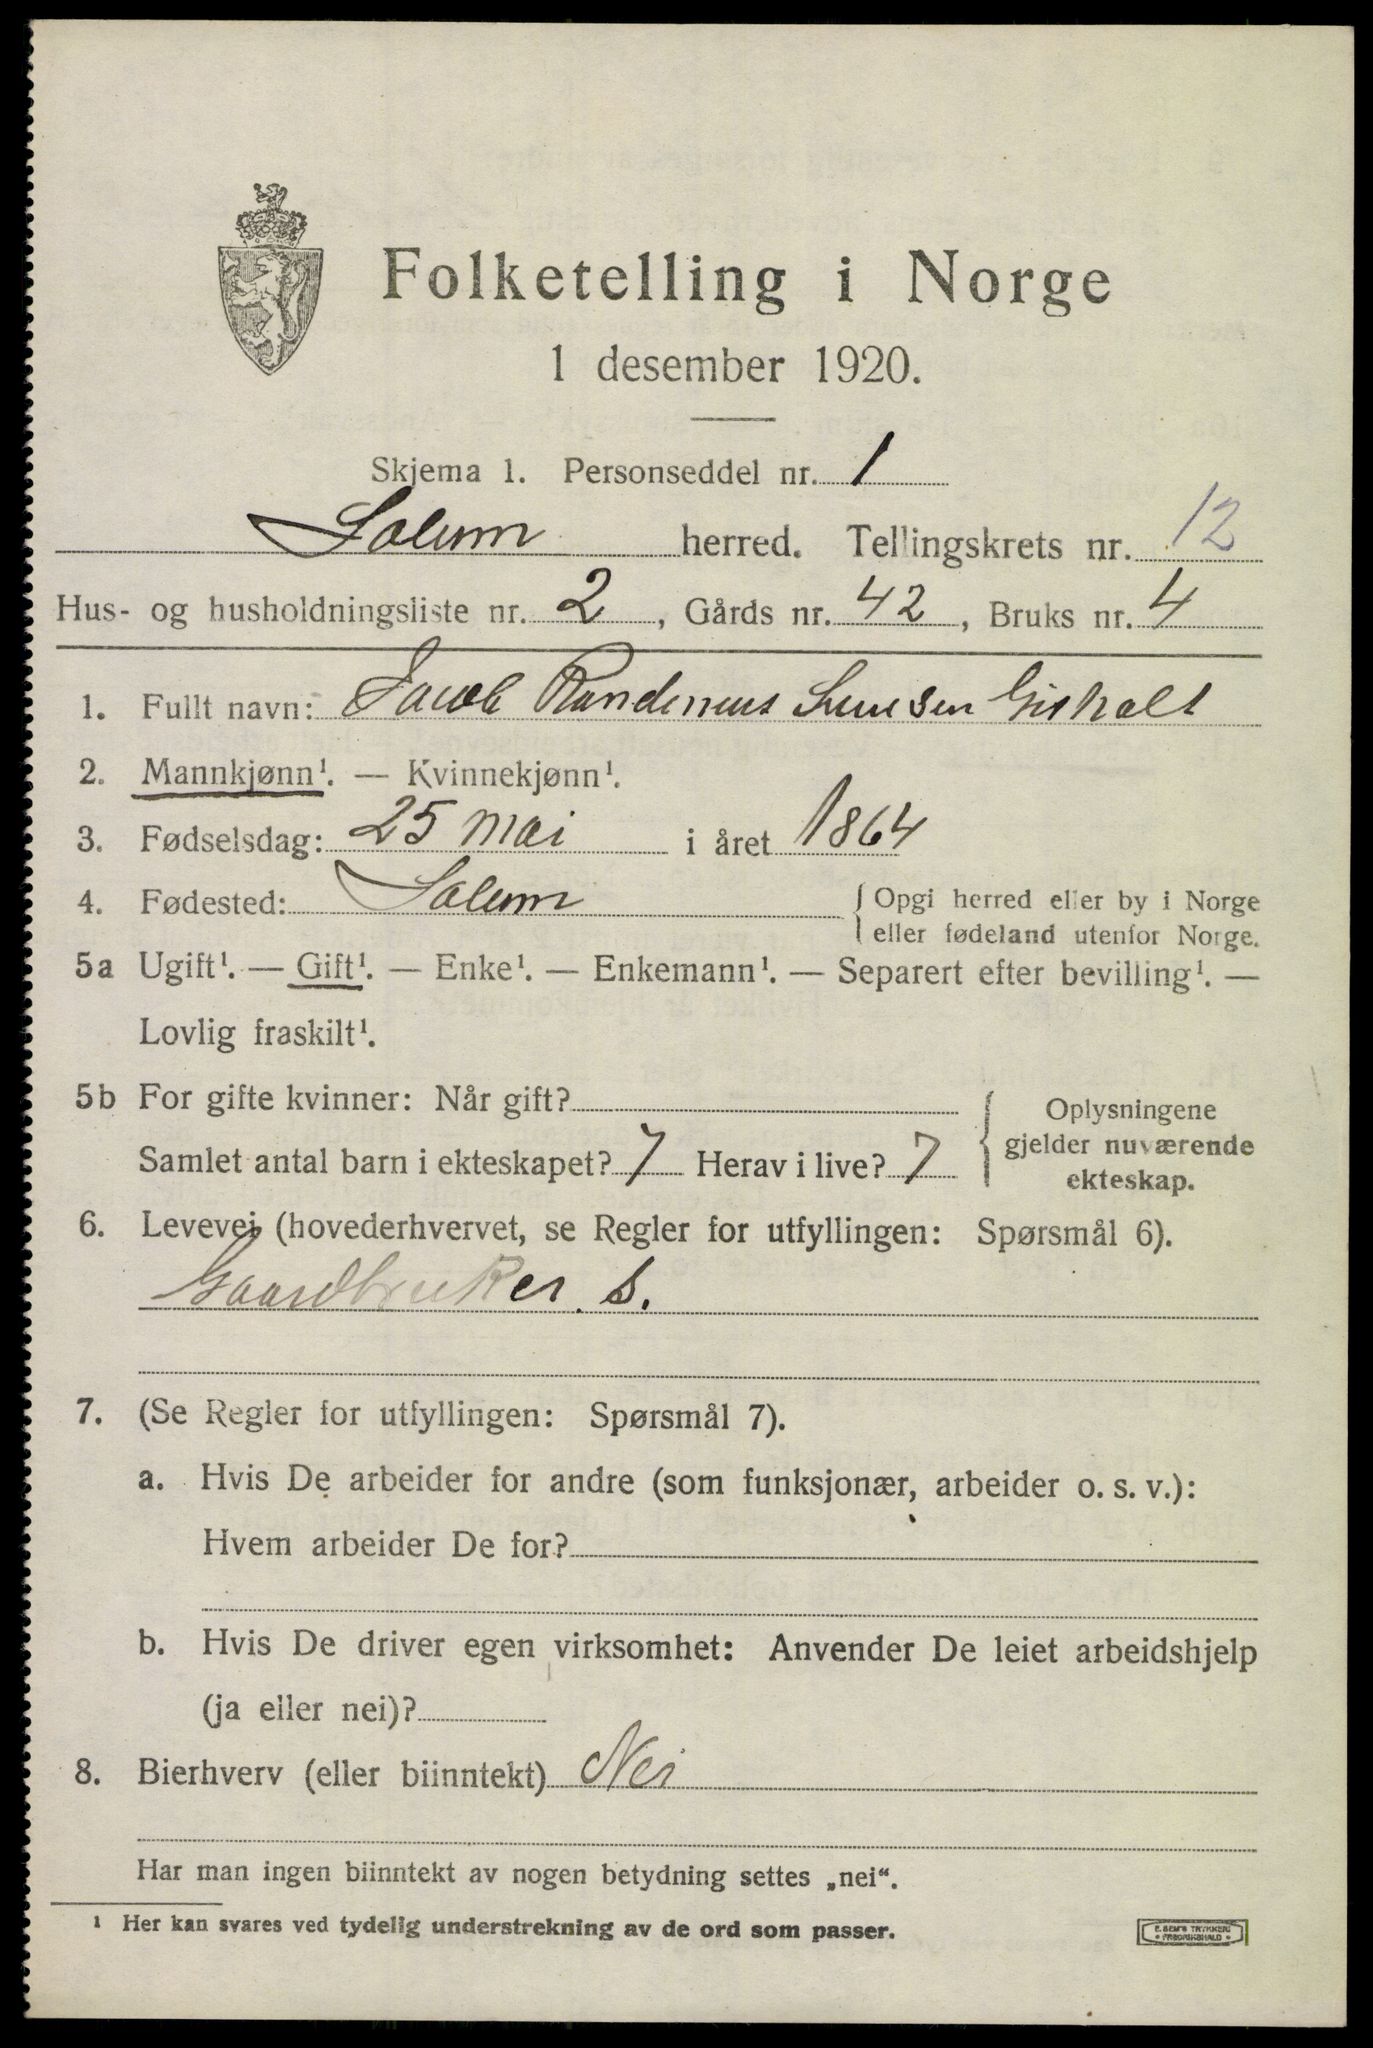 Folketelling i Norge
1 desember 1920.
Skjema 1. Personseddel nr. 1
Solum herred. Tellingskrets nr. 12
Hus- og husholdningsliste nr. 2, Gårds nr. 42, Bruks nr. 4
1. Fullt navn: Jacob
2. Mannkjønn¹. — Kvinnekjønn¹.
3. Fødselsdag: 25 mai i året 1864
4. Fødested: Solum { Opgi herred eller by i Norge
eller fødeland utenfor Norge.
5a Ugift¹. — Gift¹. — Enke¹. — Enkemann¹. — Separert efter bevilling¹. —
Lovlig fraskilt¹.
5b For gifte kvinner: Når gift?
Samlet antal barn i ekteskapet? 7 Herav i live? 7
{ Oplysningene
gjelder nuværende
ekteskap.
6. Levevei (hovederhvervet, se Regler for utfyllingen: Spørsmål 6).
Gaardbruker. S.
7. (Se Regler for utfyllingen: Spørsmål 7).
a. Hvis De arbeider for andre (som funksjonær, arbeider o. s. v.):
Hvem arbeider De for?
b. Hvis De driver egen virksomhet: Anvender De leiet arbeidshjelp
(ja eller nei)?
8. Bierhverv (eller biinntekt) Nei
Har man ingen biinntekt av nogen betydning settes „nei“.
¹ Her kan svares ved tydelig understrekning av de ord som passer.
E. SEM'S TRYKKERI
• FREDRIKSHALD •